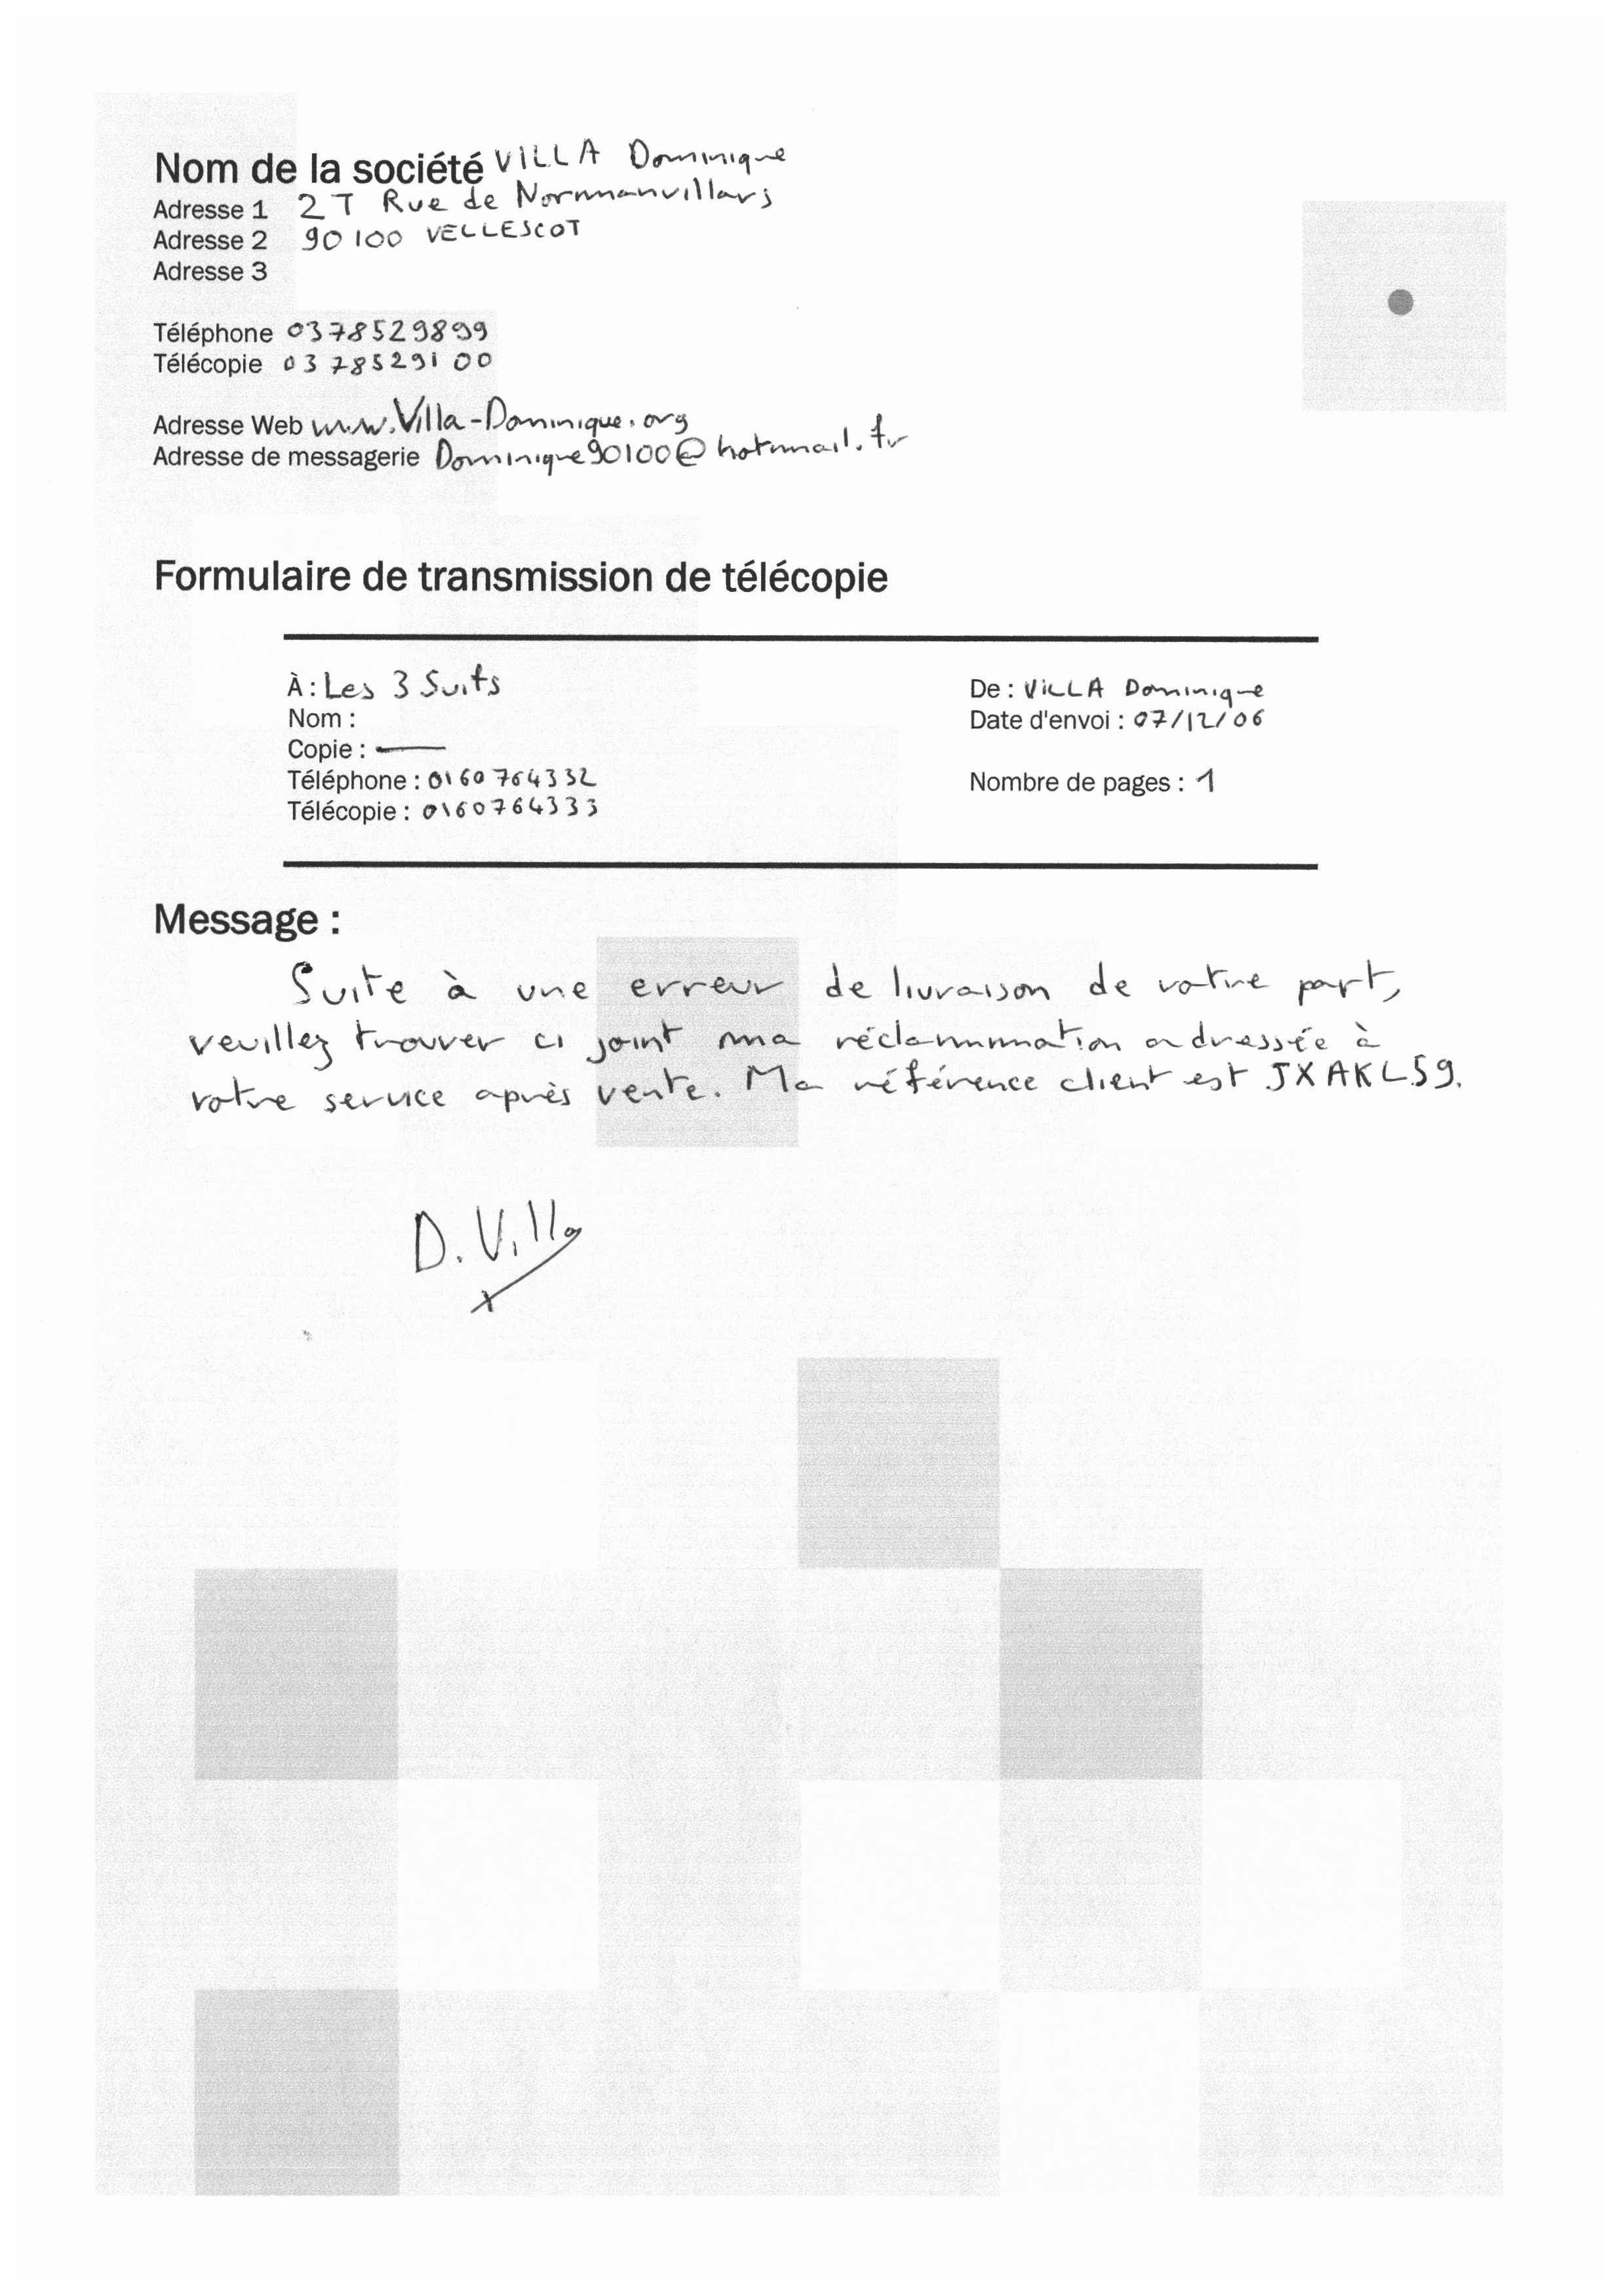 Nom de la société VILLA Dominique
Adresse 1 2T Rue de Normanvillars
Adresse 2 90100 VELLESCOT
Adresse 3
Téléphone 0378529899
Télécopie 0378529100
Adresse Web www.Villa-Dominique.org
Adresse de messagerie Dominique90100@hotmail.fr
Formulaire de transmission de télécopie
À : Les 3 Suits
De : VILLA Dominique
Nom :
Date d'envoi : 07/12/06
Copie : —
Téléphone : 0160764332
Nombre de pages : 1
Télécopie : 0160764333
Message :
Suite à une erreur de livraison de votre part,
veuillez trouver ci joint ma réclammation adressée à
votre service après vente. Ma référence client est JXAKL59.
D. Villa